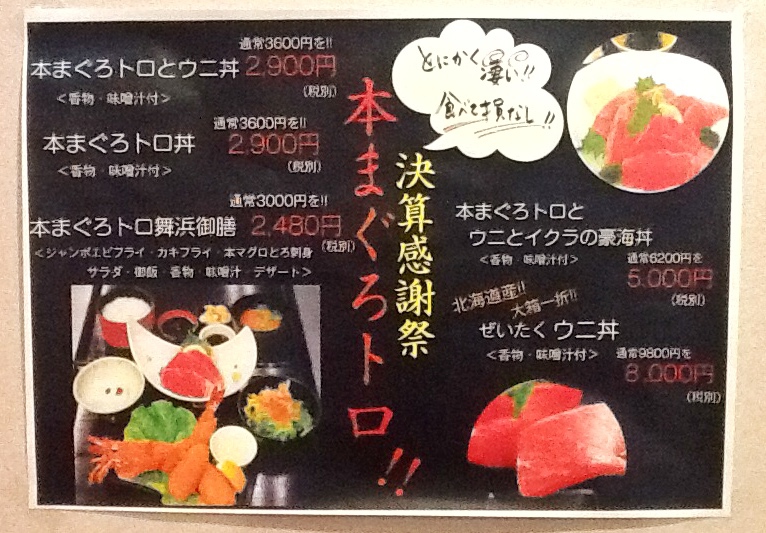 通常3600円を!!
本まぐろトロとウニ丼 2,900円
(税別)
<香物・味噌汁付>
通常3600円を!!
本まぐろトロ丼 2,900円
(税別)
<香物・味噌汁付>
通常3000円を!!
本まぐろトロ舞浜御膳 2,480円
(税別)
<ジャンボエビフライ・カキフライ・本マグロとろ刺身
サラダ・御飯・香物・味噌汁 デザート>
本まぐろトロ!!
決算感謝祭
とにかく凄い!!
食べて損なし!!
本まぐろトロと
ウニとイクラの豪海丼
<香物・味噌汁付>
通常6200円を
5,000円
(税別)
北海道産!!
大箱一折!!
ぜいたく ウニ丼
<香物・味噌汁付>
通常9800円を
8,000円
(税別)